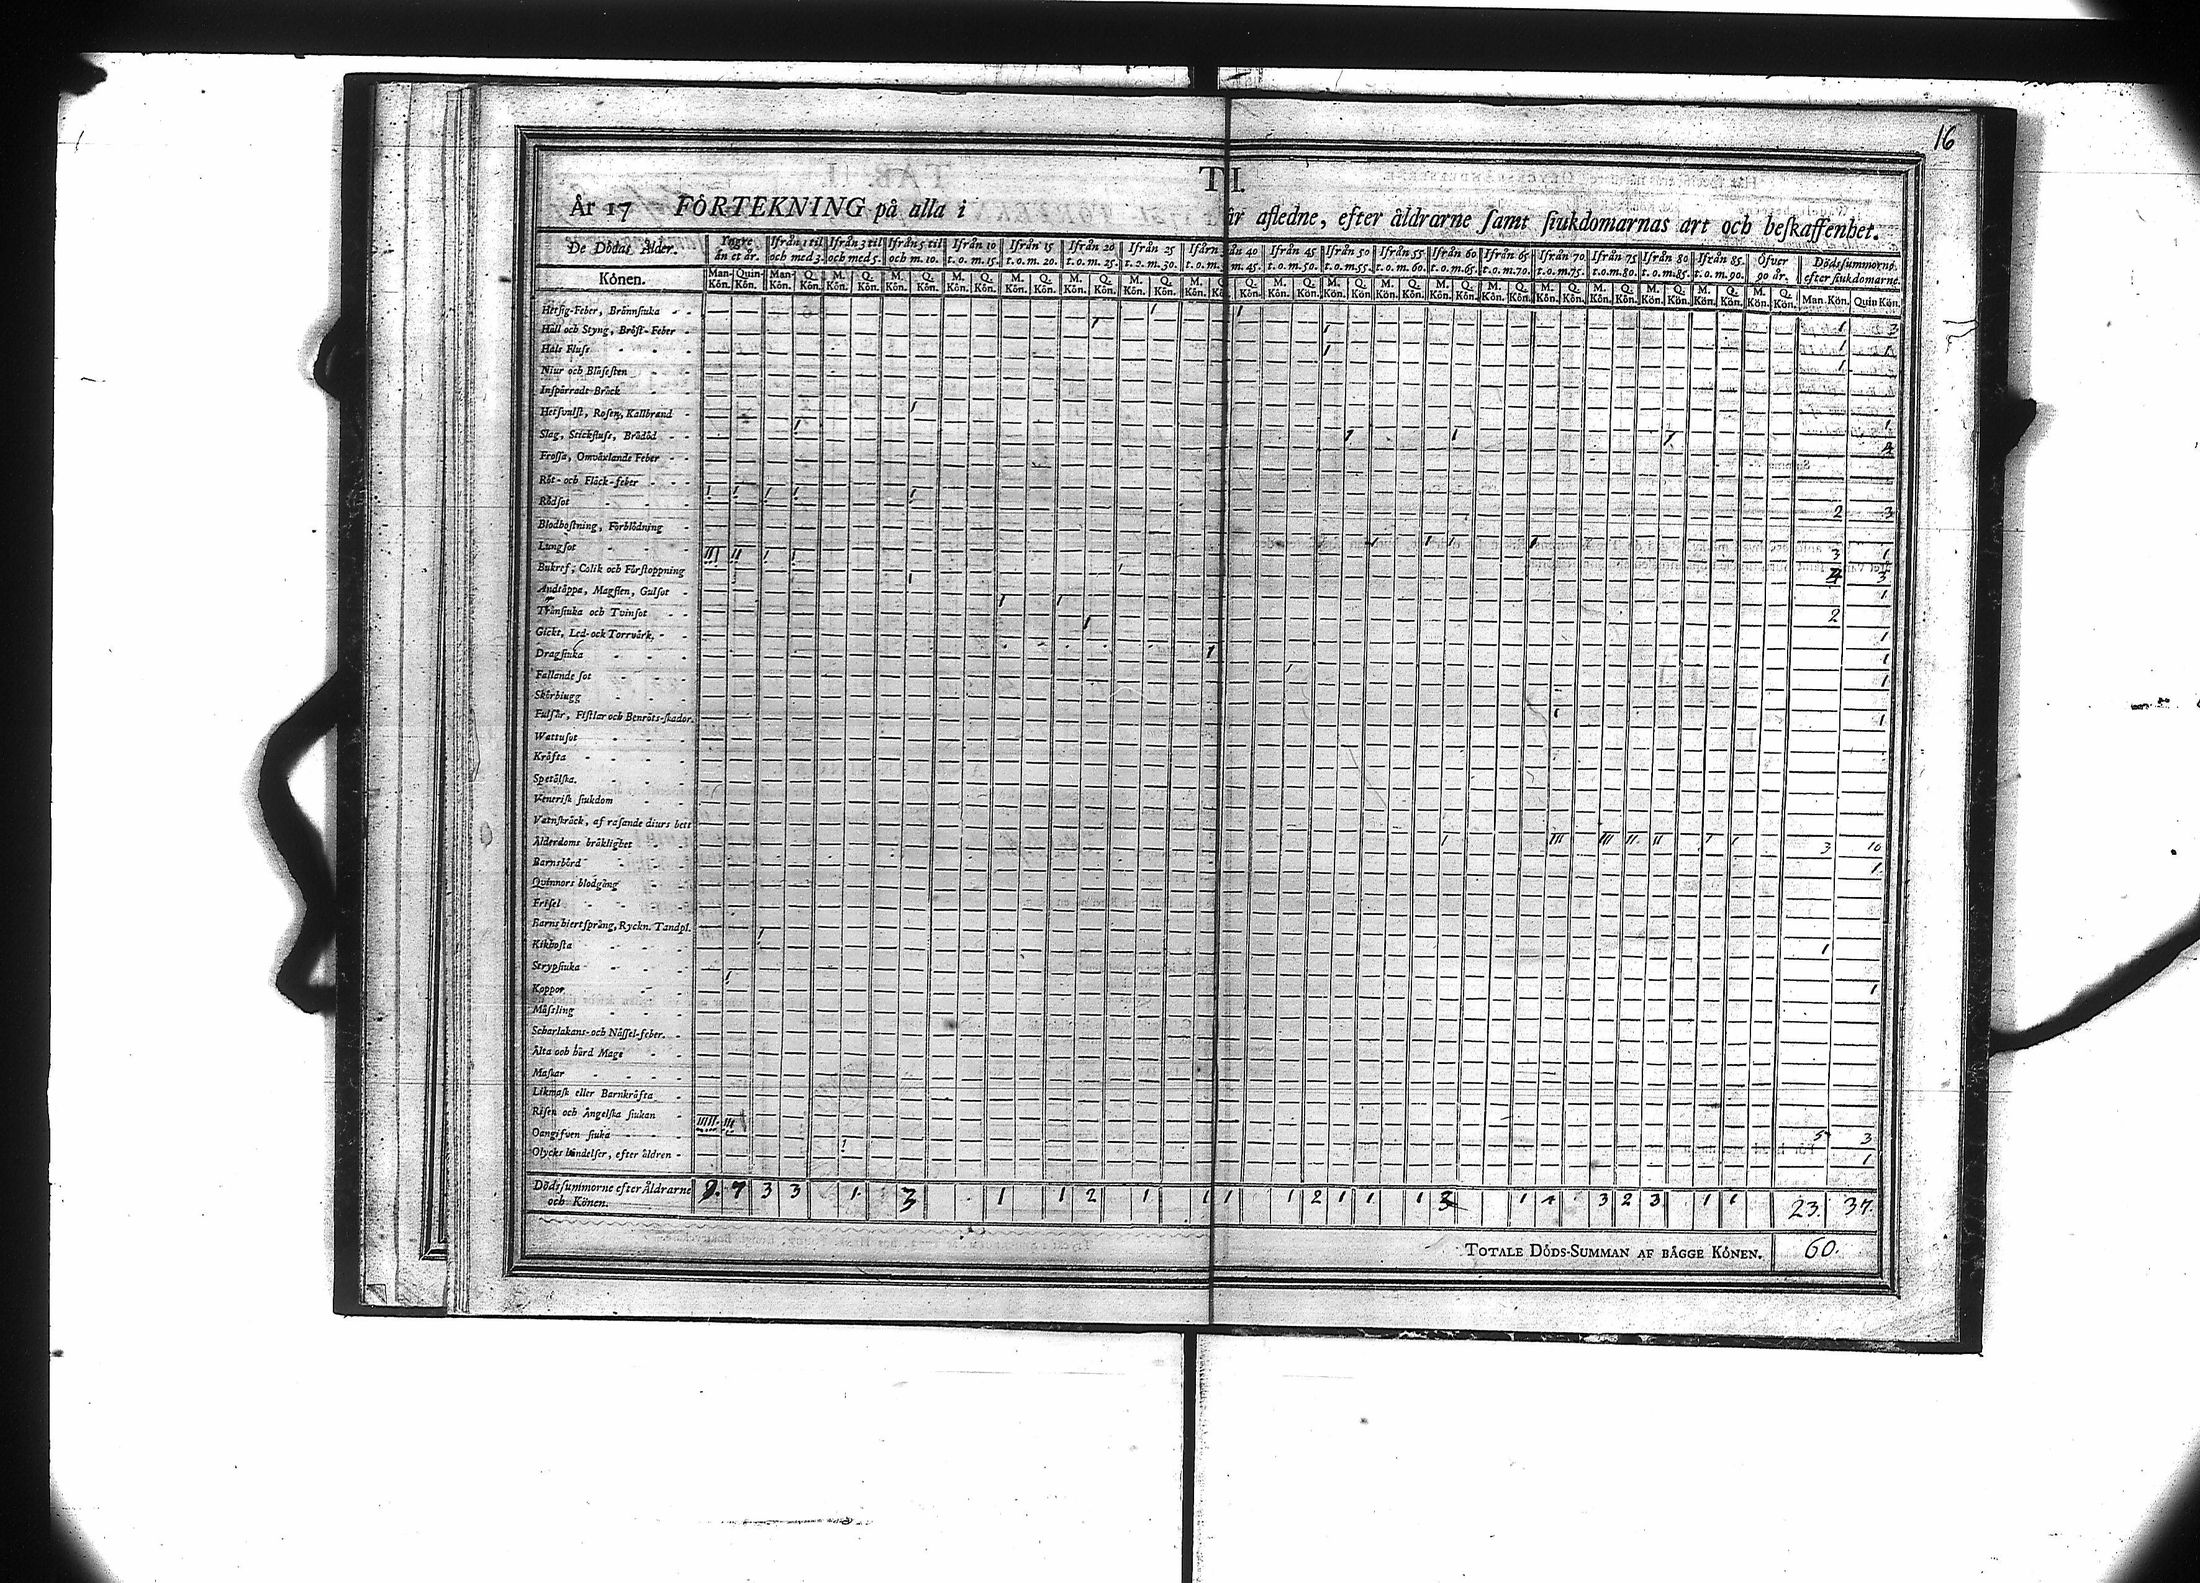 16
T I.
År 17 FÖRTEKNING på alla i år afledne, efter åldrarne samt siukdomarnas art och beskaffenhet.
De Dödas Ålder. Yngre än et år. Ifrån 1 til och med 3. Ifrån 3 til och med 5. Ifrån 5 til och m. 10. Ifrån 10 t. o. m. 15. Ifrån 15 t. o. m. 20. Ifrån 20 t. o. m. 25. Ifrån 25 t. o. m. 30. Ifrån 40 m. 45. Ifrån 45 t. o. m. 50. Ifrån 50 t. o. m. 55. Ifrån 55 t. o. m. 60. Ifrån 60 t. o. m. 65. Ifrån 65 t. o. m. 70. Ifrån 70 t. o. m. 75. Ifrån 75 t. o. m. 80. Ifrån 80 t. o. m. 85. Ifrån 85 t. o. m. 90. Öfver 90 år. Dödssummorne efter siukdomarne.
Könen. Man-Kön. Quin-Kön. Man-Kön. Q. Kön. M. Kön. Q. Kön. M. Kön. Q. Kön. M. Kön. Q. Kön. M. Kön. Q. Kön. M. Kön. Q. Kön. M. Kön. Q. Kön. Man. Kön. Quin Kön.
Hetsig-Feber, Brännsiuka 1 1 1 3
Håll och Styng, Bröst-Feber 1 1 1 1
Hals Fluss 1 1
Niur och Blåsesten
Inspärradt Bråck
Hetsvulst, Rosen, Kallbrand 1 1
Slag, Stickfluss, Brådöd 1 1 1 1 4
Frossa, Omväxlande Feber
Röt- och Fläck-feber
Rödsot 1 1 1 1 1 2 3
Blodhostning, Förblödning
Lungsot 1 1 1 1 3 1
Bukref, Colik och Förstoppning III II 1 1 1 4 3
Andtäppa, Magsien, Gulsot 1 1
Trånsiuka och Tvinsot 1 1 2
Gickt, Led- ock Torrvärk. 1 1
Dragsiuka 1 1
Fallande sot 1 1
Skörbiugg
Fulsår, Fistlar och Benröts-skador. 1 1
Wattusot
Kräfta
Spetälska.
Venerisk siukdom
Vatnskräck, af rasande diurs bett
Ålderdoms bräklighet 1 III III II II 1 1 3 10
Barnsbörd 1
Qvinnors blodgång
Frisel
Barns hiertsprång, Ryckn. Tandpl.
Kikhosta 1 1
Strypsiuka
Koppor 1 1
Mässling
Scharlakans- och Nässel-feber.
Älta och hård Mage
Maskar
Likmask eller Barnkräfta
Risen och Ängelska siukan
Oangifven siuka IIIII III 5 3
Olycks händelser, efter åldren 1 1
Dödssummorne efter Åldrarne och Könen. 9. 7 3 3 1. 3 1 1 2 1 1 1 1 2 1 1. 1 3 1 4 3 2 3 1 1 23. 37.
TOTALE DÖDS-SUMMAN AF BÅGGE KÖNEN. 60.